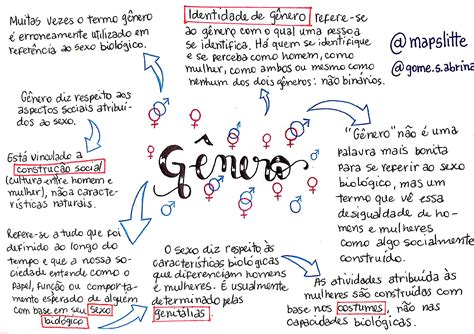 Muitas vezes o termo gênero
é erroneamente utilizado em
referência ao sexo biológico.
Identidade de gênero refere-se
ao gênero com o qual uma pessoa
se identifica. Há quem se identifique
e se perceba como homem, como
mulher, como ambos ou mesmo como
nenhum dos dois gêneros: não binários.
@mapslitte
@gome.s.abrina
Gênero diz respeito aos
aspectos sociais atribuí-
dos ao sexo.
Está vinculado a
construção social
(cultura entre homem e
mulher), não a caracte-
rísticas naturais.
Gênero
"Gênero" não é uma
palavra mais bonita
para se referir ao sexo
biológico, mas um
termo que vê essa
desigualdade de ho-
mens e mulheres
como algo socialmente
construído.
Refere-se a tudo que foi
definido ao longo do
tempo e que a nossa so-
ciedade entende como o
papel, função ou compor-
tamento esperado de alguém
com base em seu sexo
biológico
O sexo diz respeito às
características biológicas
que diferenciam homens
e mulheres. É usualmente
determinado pelas
genitálias.
As atividades atribuída às
mulheres são construídas com
base nos costumes, não nas
capacidades biológicas.